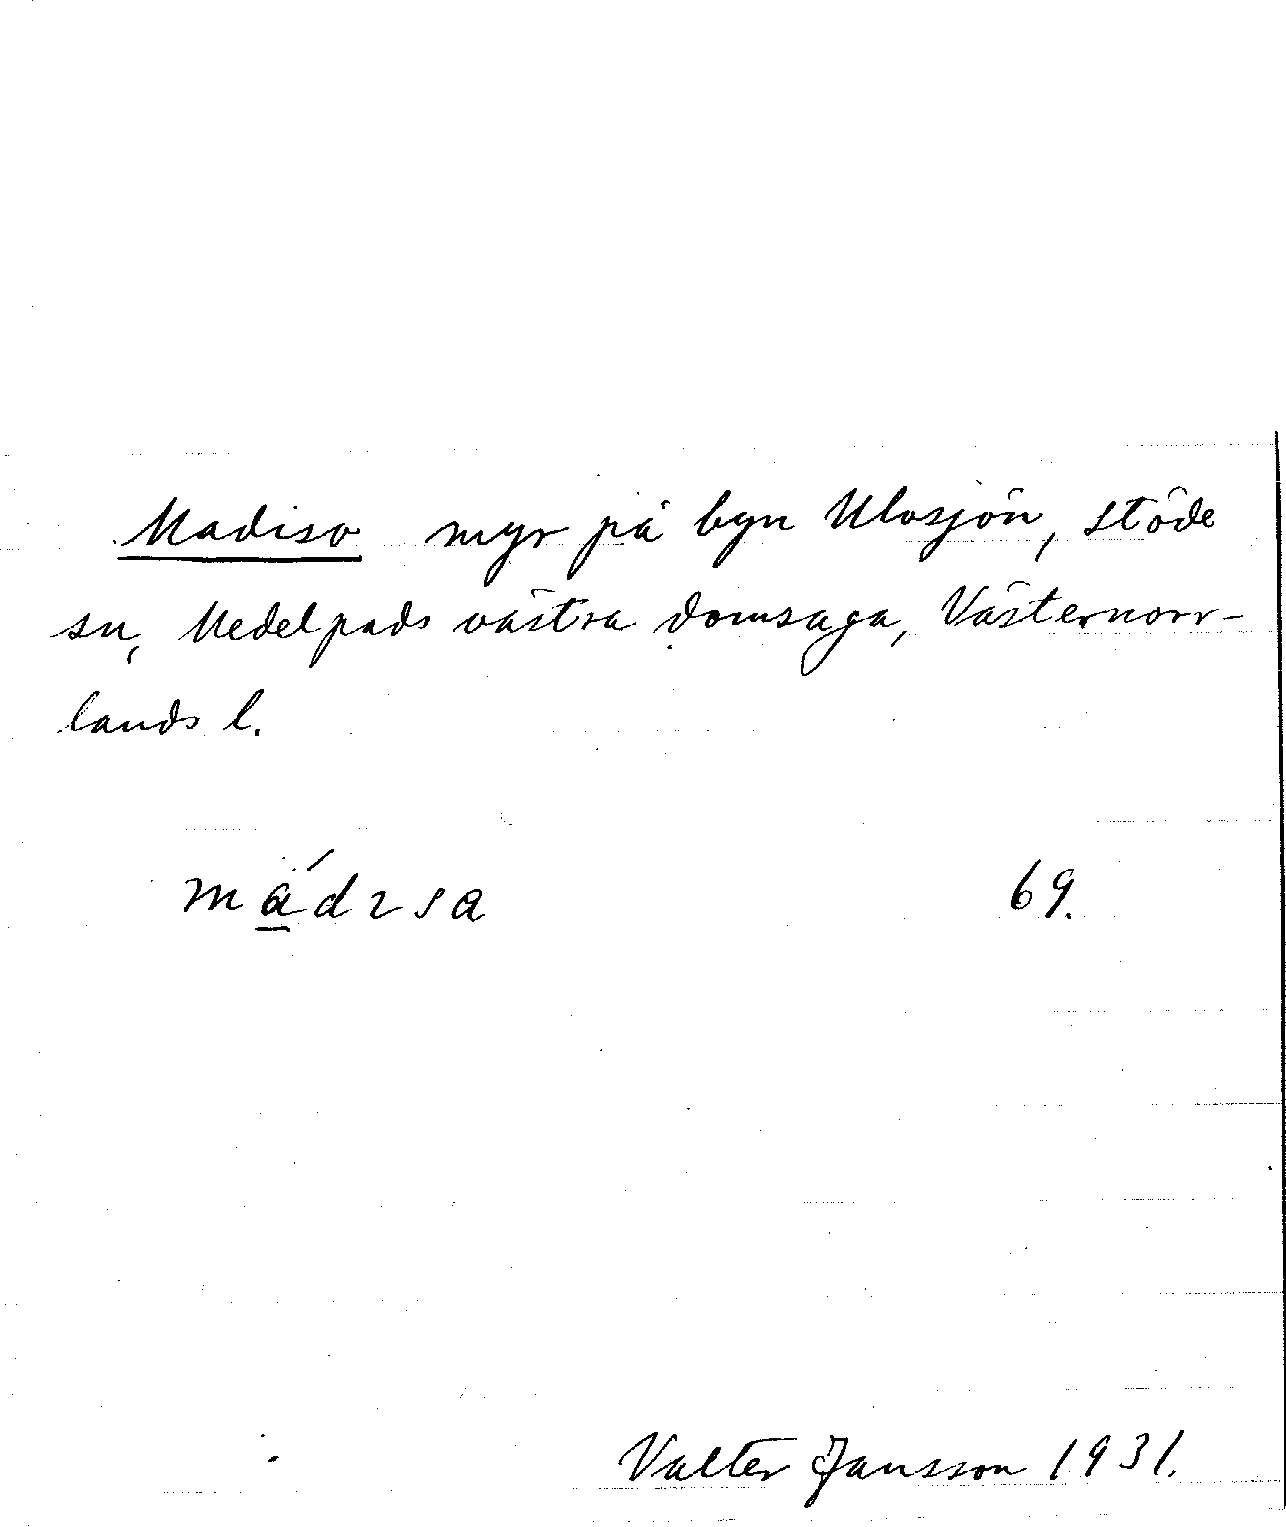 Madiso myr på byn Ulvsjön, Stöde
sn, Medelpads västra domsaga, Västernorr-
lands l.
mádısa 69.
Valter Jansson 1931.